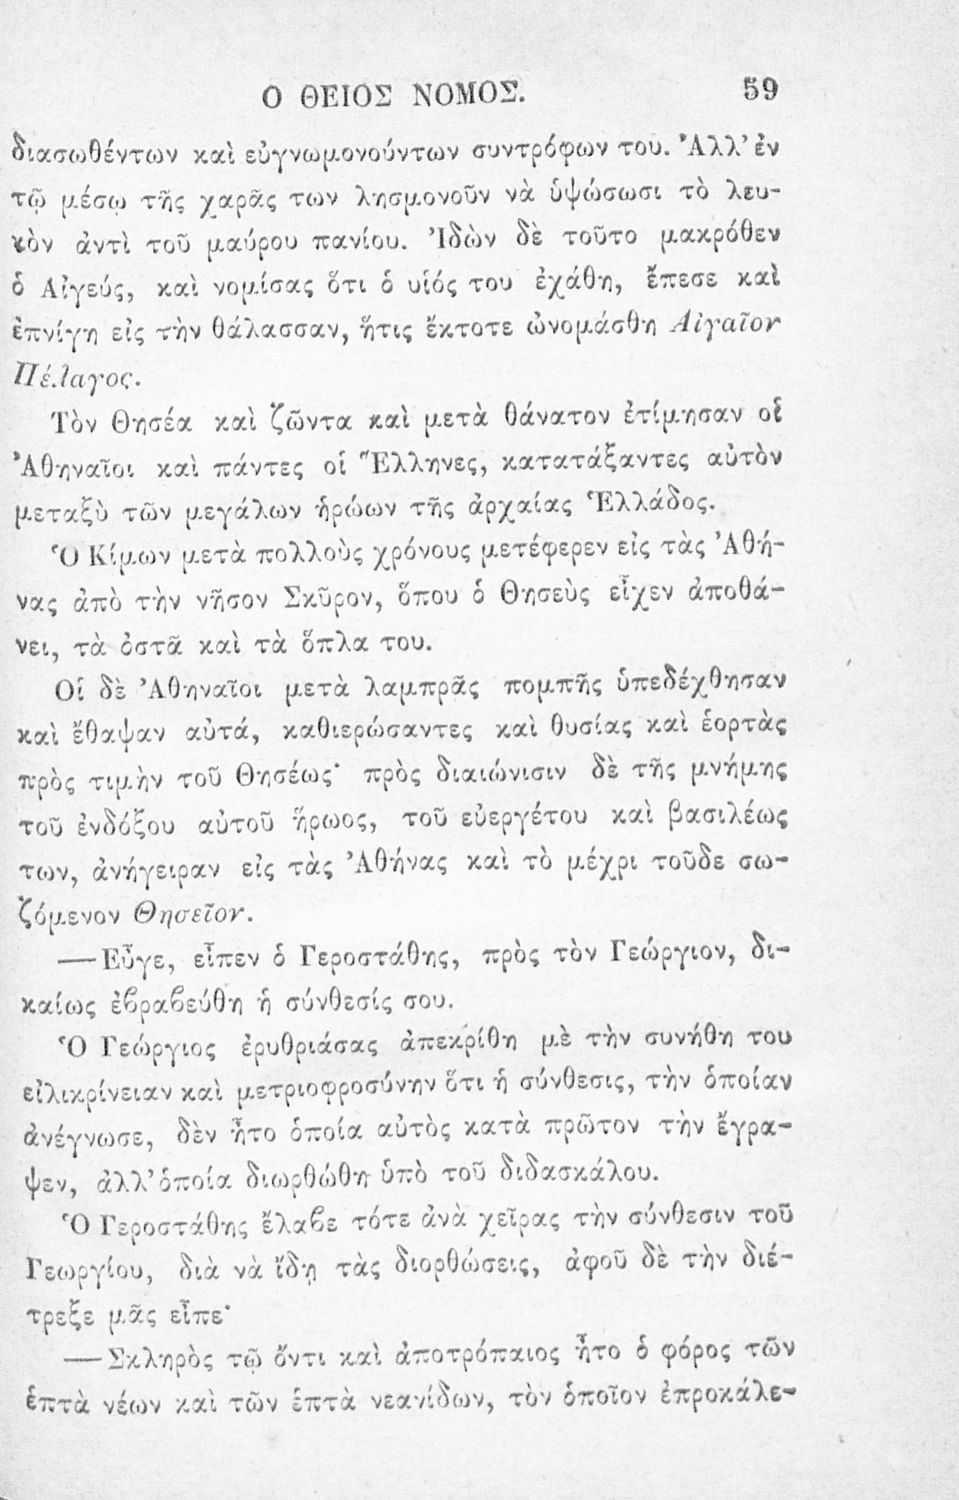 Ο ΘΕΙΟΣ ΝΟΜΟΣ. 59
διασωθέντων καὶ εὐγνωμονούντων συντρόφων του. Ἀλλ' ἐν
τῷ μέσῳ τῆς χαρᾶς των λησμονοῦν νὰ ὑψώσωσι τὸ λευ-
κὸν ἀντὶ τοῦ μαύρου πανίου. Ἰδὼν δὲ τοῦτο μακρόθεν
ὁ Αἰγεύς, καὶ νομίσας ὅτι ὁ υἱός του ἐχάθη, ἔπεσε καὶ
ἐπνίγη εἰς τὴν θάλασσαν, ἥτις ἔκτοτε ὠνομάσθη Αἰγαῖον
Πέλαγος.
Τὸν Θησέα καὶ ζῶντα καὶ μετὰ θάνατον ἐτίμησαν οἱ
Ἀθηναῖοι καὶ πάντες οἱ Ἕλληνες, κατατάξαντες αὐτὸν
μεταξὺ τῶν μεγάλων ἡρώων τῆς ἀρχαίας Ἑλλάδος.
Ὁ Κίμων μετὰ πολλοὺς χρόνους μετέφερεν εἰς τὰς Ἀθή-
νας ἀπὸ τὴν νῆσον Σκῦρον, ὅπου ὁ Θησεὺς εἶχεν ἀποθά-
νει, τὰ ὀστᾶ καὶ τὰ ὅπλα του.
Οἱ δὲ Ἀθηναῖοι μετὰ λαμπρᾶς πομπῆς ὑπεδέχθησαν
καὶ ἔθαψαν αὐτά, καθιερώσαντες καὶ θυσίας καὶ ἑορτὰς
πρὸς τιμὴν τοῦ Θησέως· πρὸς διαιώνισιν δὲ τῆς μνήμης
τοῦ ἐνδόξου αὐτοῦ ἥρωος, τοῦ εὐεργέτου καὶ βασιλέως
των, ἀνήγειραν εἰς τὰς Ἀθήνας καὶ τὸ μέχρι τοῦδε σω-
ζόμενον Θησεῖον.
—Εὖγε, εἶπεν ὁ Γεροστάθης, πρὸς τὸν Γεώργιον, δι-
καίως ἐβραβεύθη ἡ σύνθεσίς σου.
Ὁ Γεώργιος ἐρυθριάσας ἀπεκρίθη μὲ τὴν συνήθη του
εἰλικρίνειαν καὶ μετριοφροσύνην ὅτι ἡ σύνθεσις, τὴν ὁποίαν
ἀνέγνωσε, δὲν ἦτο ὁποία αὐτὸς κατὰ πρῶτον τὴν ἔγρα-
ψεν, ἀλλ' ὁποία διωρθώθη ὑπὸ τοῦ διδασκάλου.
Ὁ Γεροστάθης ἔλαβε τότε ἀνὰ χεῖρας τὴν σύνθεσιν τοῦ
Γεωργίου, διὰ νὰ ἴδῃ τὰς διορθώσεις, ἀφοῦ δὲ τὴν διέ-
τρεξε μᾶς εἶπε·
—Σκληρὸς τῷ ὄντι καὶ ἀποτρόπαιος ἦτο ὁ φόρος τῶν
ἑπτὰ νέων καὶ τῶν ἑπτὰ νεανίδων, τὸν ὁποῖον ἐπροκάλε-